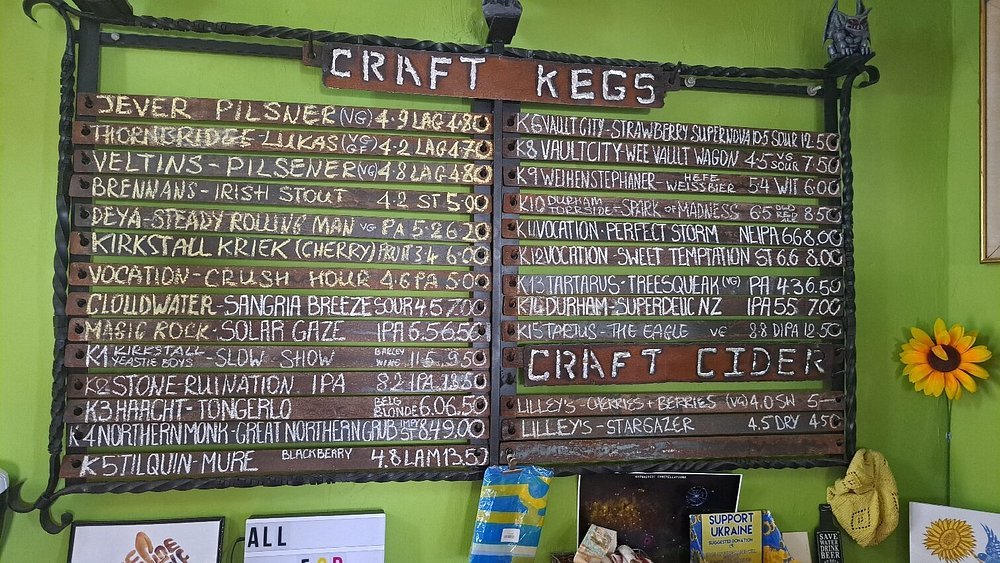 CRAFT KEGS
JEVER PILSNER (VG) 4.9 LAG 4.80
THORNBRIDGE - LUKAS 4.2 LAG 4.70
VELTINS - PILSENER (VG) 4.8 LAG 4.80
BRENNANS - IRISH STOUT 4.2 ST 5.00
DEYA - STEADY ROLLING MAN VG PA 5.2 6.20
KIRKSTALL KRIEK (CHERRY) FRUIT 3.4 6.00
VOCATION - CRUSH HOUR 4.6 PA 5.00
CLOUDWATER - SANGRIA BREEZE SOUR 4.5 7.00
MAGIC ROCK - SOLAR GAZE IPA 6.5 6.50
K1 KIRKSTALL YEASTIE BOYS - SLOW SHOW BARLEY WINE 11.5 9.50
K2 STONE - RUINATION IPA 8.2 IPA 13.50
K3 HAACHT - TONGERLO BELG BLONDE 6.0 6.50
K4 NORTHERN MONK - GREAT NORTHERN GRUB IMP ST 8.4 9.00
K5 TILQUIN - MURE BLACKBERRY 4.8 LAM 13.50
K6 VAULT CITY - STRAWBERRY SUPERNOVA 10.5 SOUR 12.50
K8 VAULT CITY - WEE VAULT WAGON 4.5 VG SOUR 7.50
K9 WEIHENSTEPHANER - HEFE WEISSBIER 5.4 WIT 6.00
K10 DURHAM TORRSIDE - SPARK OF MADNESS 6.5 RED 8.50
K11 VOCATION - PERFECT STORM NEIPA 6.6 8.00
K12 VOCATION - SWEET TEMPTATION ST 6.6 8.00
K13 TARTARUS - TREESQUEAK (VG) PA 4.3 6.50
K14 DURHAM - SUPERDELIC NZ IPA 5.5 7.00
K15 - THE EAGLE VG 8.8 DIPA 12.50
CRAFT CIDER
LILLEY'S - CHERRIES + BERRIES (VG) 4.0 SW 5-
LILLEY'S - STARGAZER 4.5 DRY 4.50
ALL
SUPPORT
UKRAINE
SUGGESTED DONATION
SAVE
WATER
DRINK
BEER